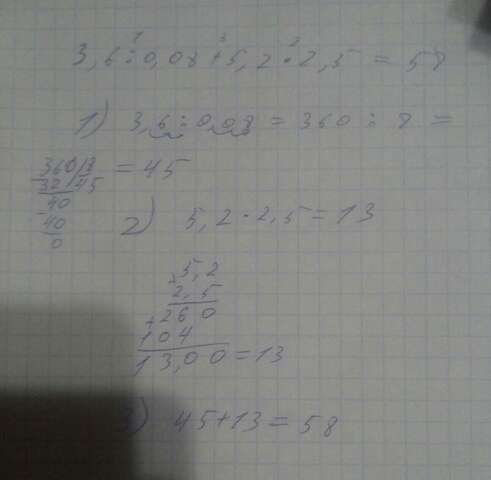 1 3 2
3,6:0,08+5,2·2,5=58
1) 3,6:0,08=360:8=
360|8 =45
-32 |45
-40
40
0
2) 5,2·2,5=13
×5,2
2,5
+260
104
13,00=13
3) 45+13=58